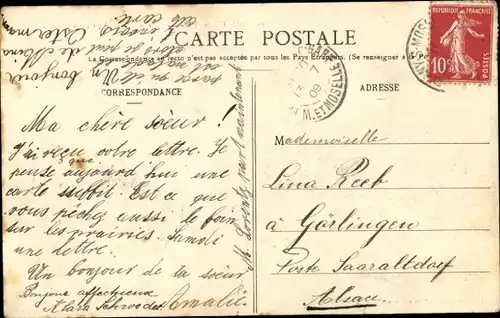 CARTE POSTALE
La Correspondance au recto n'est pas acceptée par tous les Pays Étrangers. (Se renseigner à la Poste)
CORRESPONDANCE
ADRESSE
RÉPUBLIQUE FRANÇAISE
10c
M. ET MOSELLE
7
09
Ma chère sœur!
J'ai reçu votre lettre. Je
pense aujourd'hui une
carte suffit. Est ce que
vous pêchez aussi le foin
sur les prairies. Lundi
une lettre.
Un bonjour de ta sœur
Amalie
Bonjour affectueux
Klara Schroeder
M. Lorentz part maintenant
Un bonjour
Mademoiselle
Lina Reeb
à Görlingen
Poste Saaraltdorf
Alsace